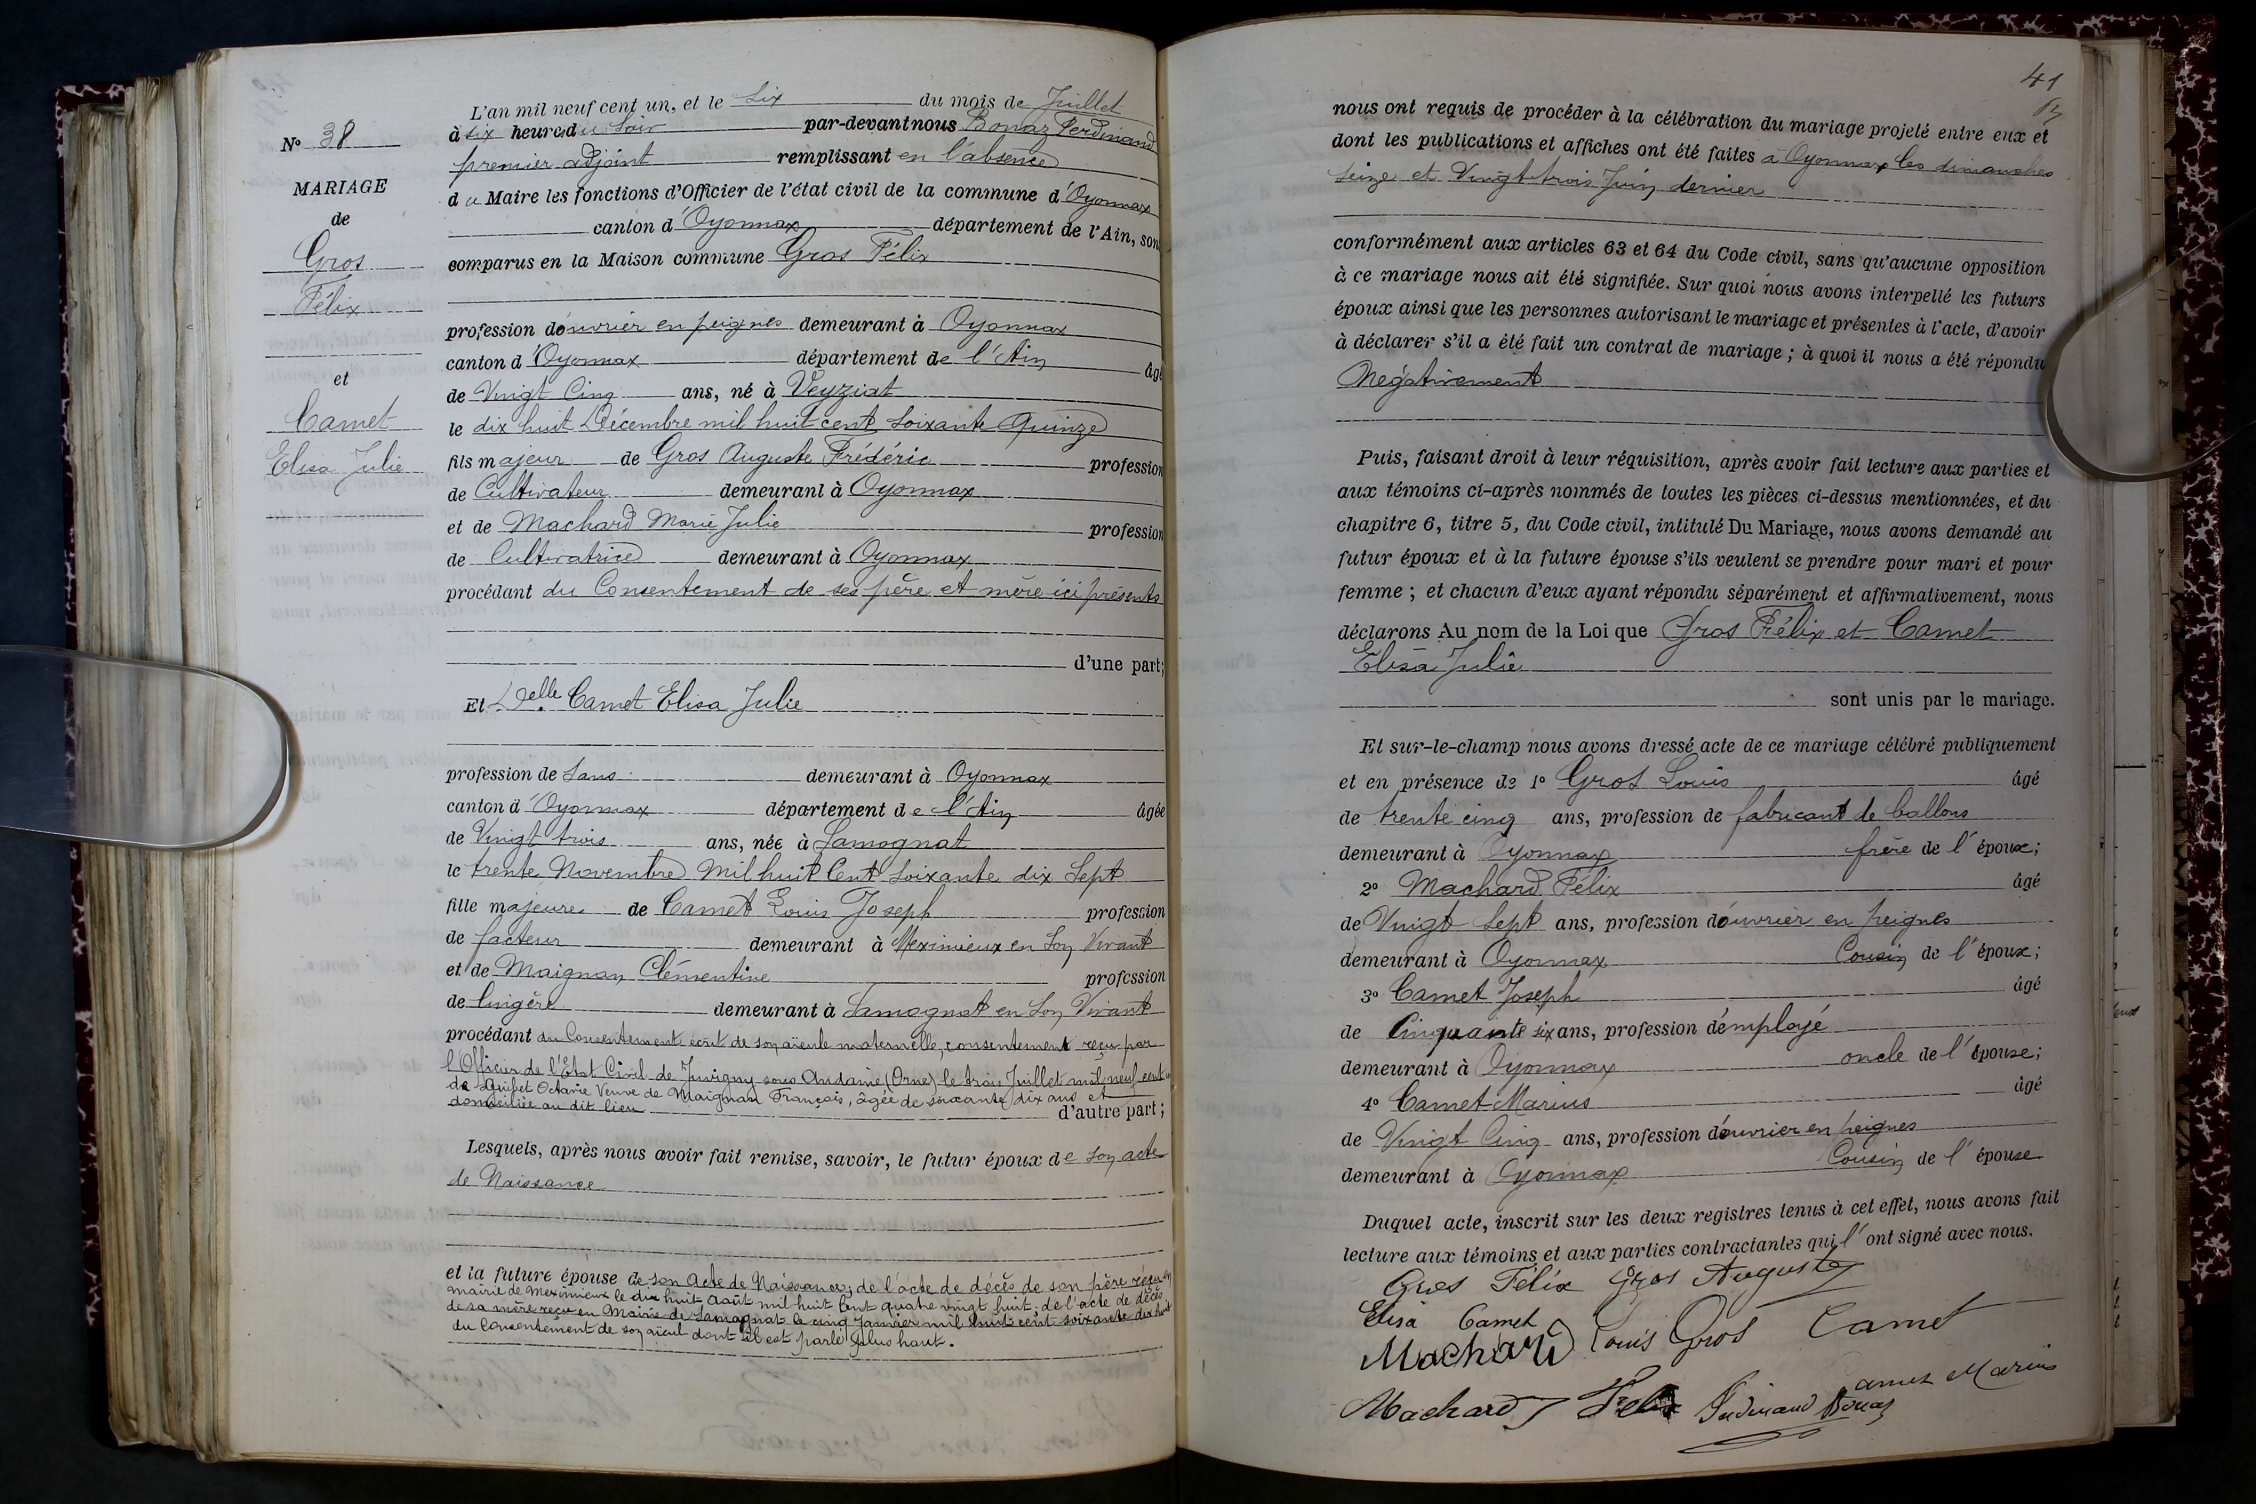 N° 38
MARIAGE
de
Gros
Félix
et
Camet
Elisa Julie
L'an mil neuf cent un, et le six du mois de Juillet
à six heures du Soir par-devant nous Bonaz Ferdinand
premier adjoint remplissant en l'absence
du Maire les fonctions d'Officier de l'état civil de la commune d'Oyonnax
canton d'Oyonnax département de l'Ain, son
comparus en la Maison commune Gros Félix
profession d'ouvrier en peignes demeurant à Oyonnax
canton d'Oyonnax département de l'Ain âgé
de Vingt Cinq ans, né à Veyziat
le dix huit Décembre mil huit cent soixante Quinze
fils majeur de Gros Auguste Frédéric profession
de Cultivateur demeurant à Oyonnax
et de Machard Marie Julie profession
de Cultivatrice demeurant à Oyonnax
procédant du Consentement de ses père et mère ici présents
d'une part;
Et Delle Camet Elisa Julie
profession de Sans demeurant à Oyonnax
canton d'Oyonnax département de l'Ain âgée
de Vingt trois ans, née à Samognat
le trente Novembre Mil huit Cent soixante dix Sept
fille majeure de Camet Louis Joseph profession
de facteur demeurant à Meximieux en Son Vivant
et de Maignan Clémentine profession
de lingère demeurant à Samognat en Son Vivant
procédant du Consentement écrit de son aïeule maternelle, consentement reçu par
l'Officier de l'Etat Civil de Juvigny sous Andaine (Orne) le trois Juillet mil neuf cent un
de Octavie Veuve de Maignan François, âgée de soixante dix ans et
domiciliée au dit lieu d'autre part;
Lesquels, après nous avoir fait remise, savoir, le futur époux de son acte
de Naissance
et la future épouse de son Acte de Naissance; de l'acte de décès de son père reçu en
mairie de Meximieux le dix huit Août mil huit Cent quatre vingt huit; de l'acte de décès
de sa mère reçu en Mairie de Samognat le cinq Janvier mil huit cent soixante dix huit
du Consentement de son aïeul dont il est parlé plus haut.
41
nous ont requis de procéder à la célébration du mariage projeté entre eux et
dont les publications et affiches ont été faites à Oyonnax les dimanches
seize et Vingt trois Juin dernier
conformément aux articles 63 et 64 du Code civil, sans qu'aucune opposition
à ce mariage nous ait été signifiée. Sur quoi nous avons interpellé les futurs
époux ainsi que les personnes autorisant le mariage et présentes à l'acte, d'avoir
à déclarer s'il a été fait un contrat de mariage; à quoi il nous a été répondu
Négativement
Puis, faisant droit à leur réquisition, après avoir fait lecture aux parties et
aux témoins ci-après nommés de toutes les pièces ci-dessus mentionnées, et du
chapitre 6, titre 5, du Code civil, intitulé Du Mariage, nous avons demandé au
futur époux et à la future épouse s'ils veulent se prendre pour mari et pour
femme; et chacun d'eux ayant répondu séparément et affirmativement, nous
déclarons Au nom de la Loi que Gros Félix et Camet
Elisa Julie
sont unis par le mariage.
Et sur-le-champ nous avons dressé acte de ce mariage célébré publiquement
et en présence de 1° Gros Louis âgé
de trente cinq ans, profession de fabricant de ballons
demeurant à Oyonnax frère de l'époux;
2° Machard Félix âgé
de Vingt Sept ans, profession d'ouvrier en peignes
demeurant à Oyonnax Cousin de l'époux;
3° Camet Joseph âgé
de Cinquante six ans, profession d'employé
demeurant à Oyonnax oncle de l'épouse;
4° Camet Marius âgé
de Vingt Cinq ans, profession d'ouvrier en peignes
demeurant à Oyonnax Cousin de l'épouse
Duquel acte, inscrit sur les deux registres tenus à cet effet, nous avons fait
lecture aux témoins et aux parties contractantes qui l'ont signé avec nous.
Gros Félix Gros Auguste
Elisa Camet
Machard Louis Gros Camet
Camet Marius
Machard Félix Ferdinand Bonaz